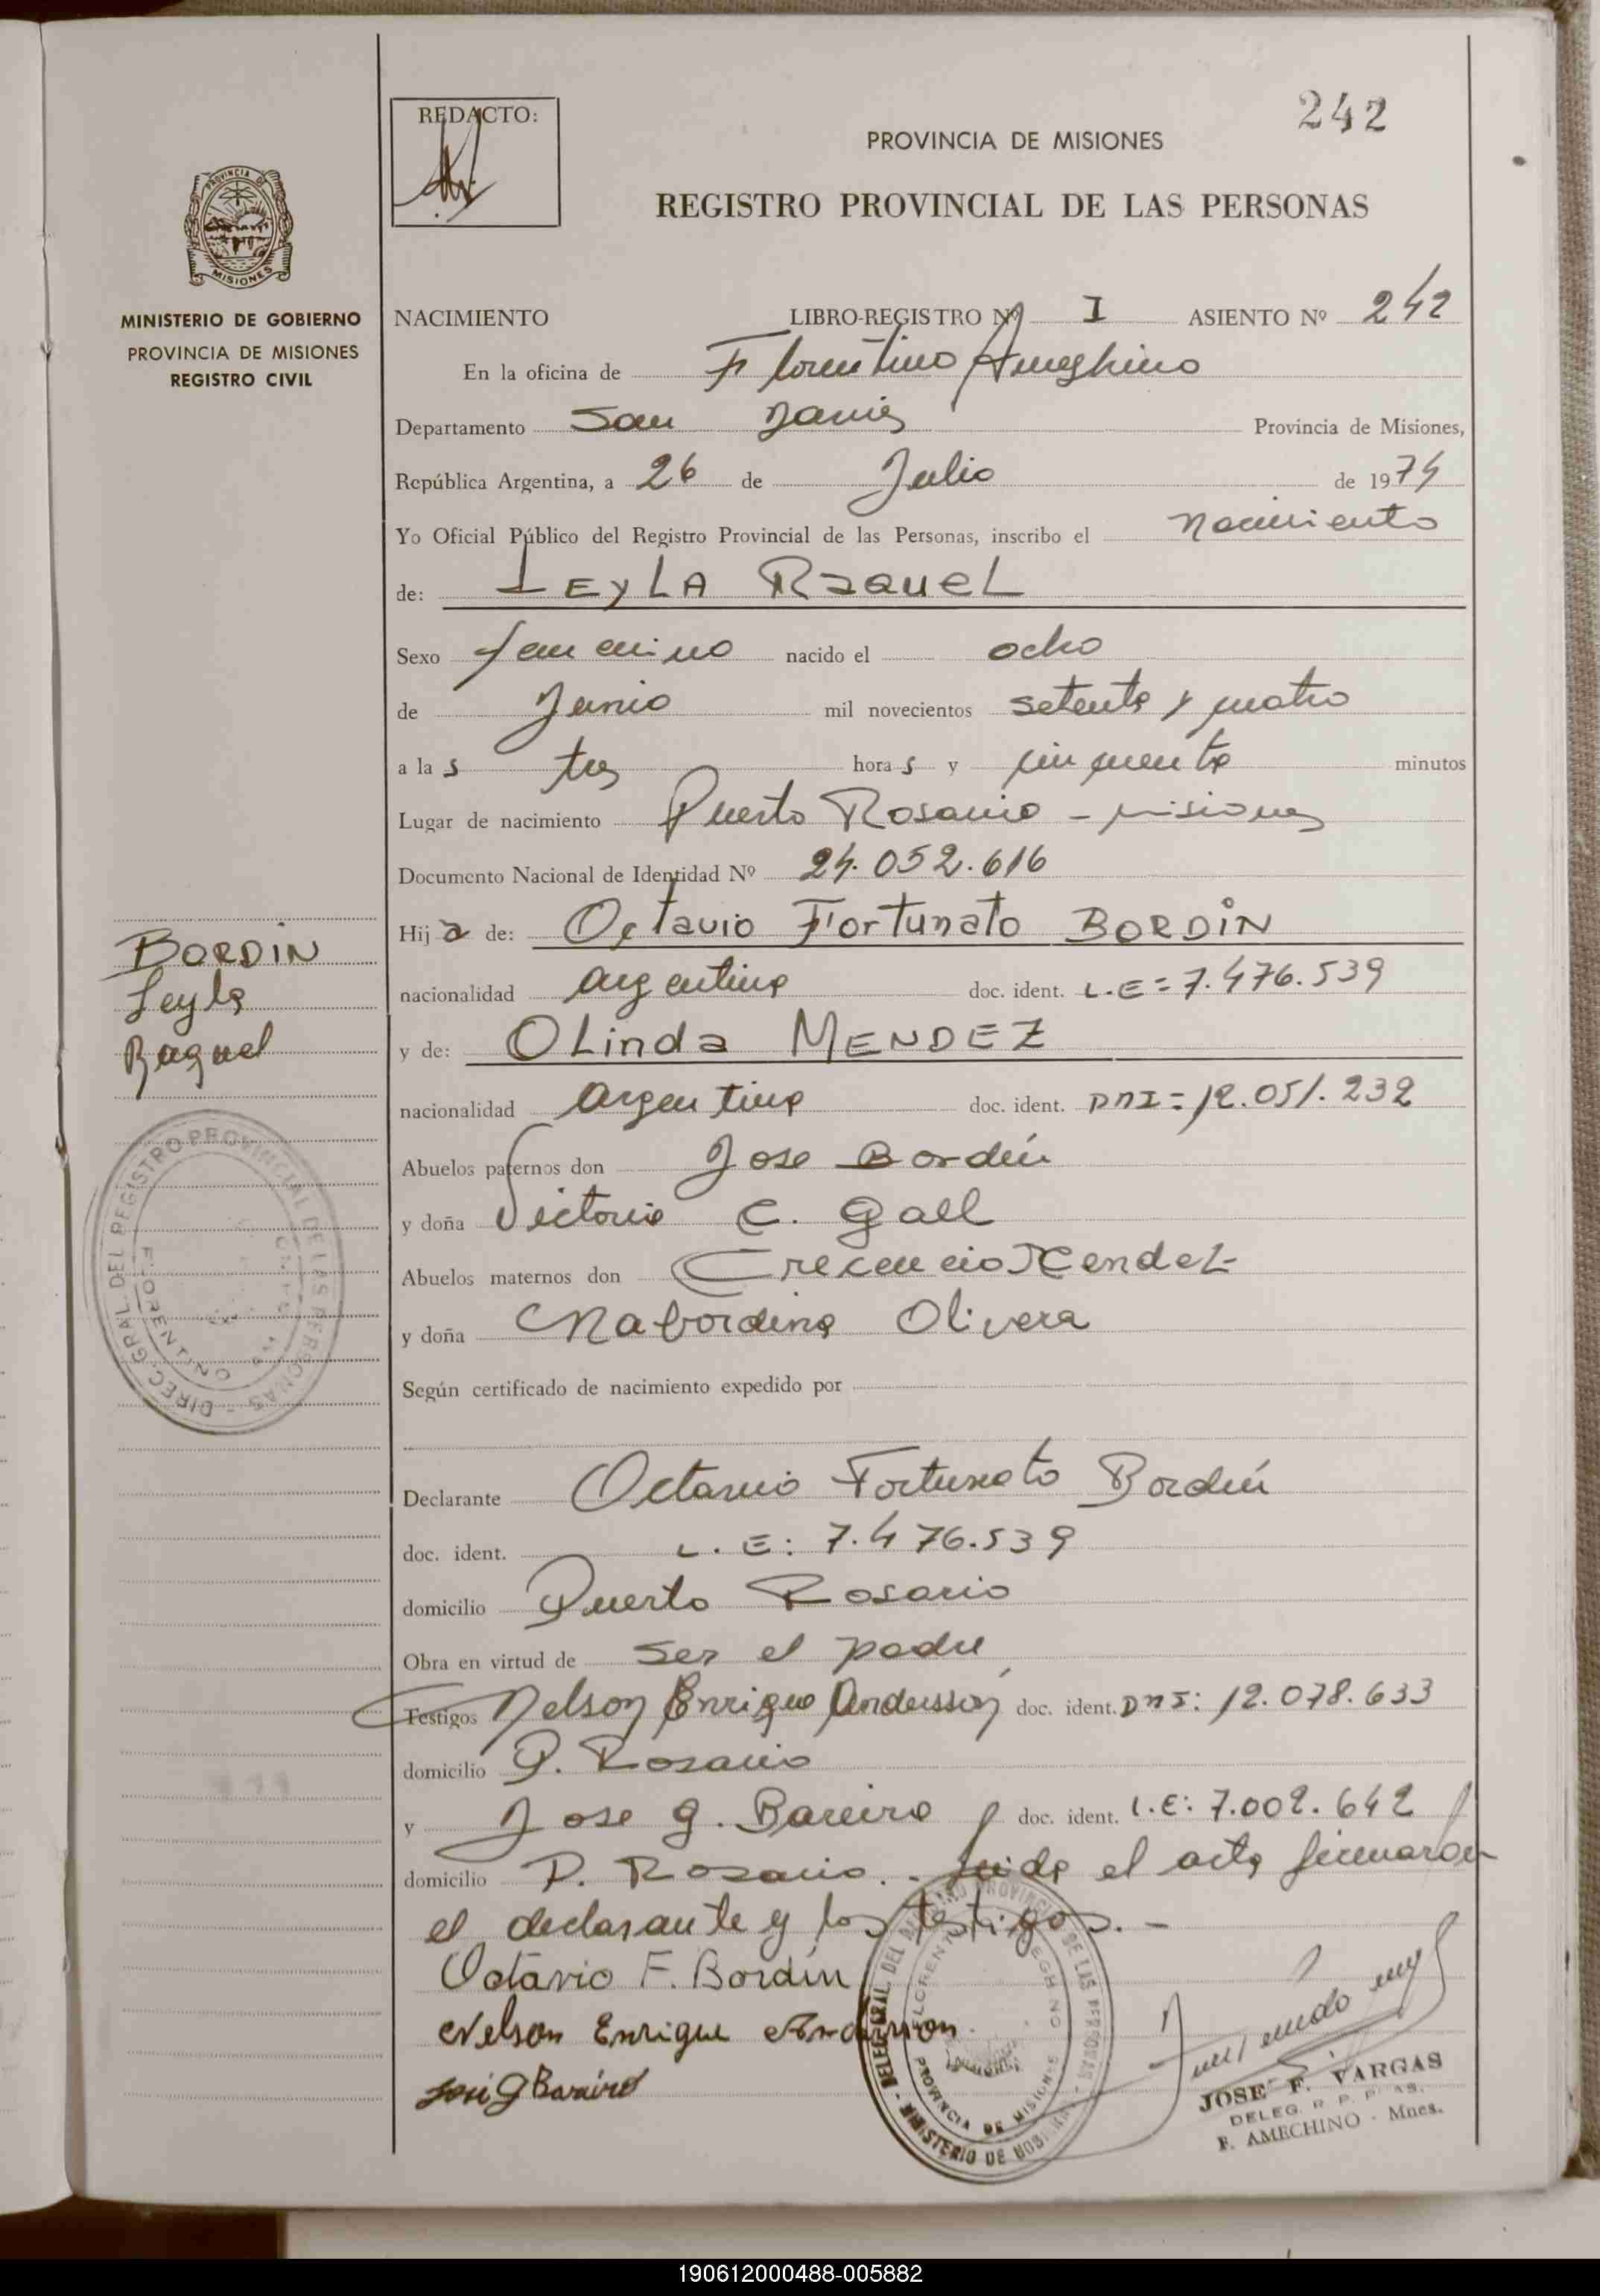 242
REDACTO:
PROVINCIA DE MISIONES
REGISTRO PROVINCIAL DE LAS PERSONAS
PROVINCIA DE
MISIONES
MINISTERIO DE GOBIERNO
PROVINCIA DE MISIONES
REGISTRO CIVIL
NACIMIENTO LIBRO-REGISTRO Nº I ASIENTO Nº 242
En la oficina de Florentino Ameghino
Departamento San Javier Provincia de Misiones,
República Argentina, a 26 de Julio de 1974
Yo Oficial Público del Registro Provincial de las Personas, inscribo el nacimiento
de: LEYLA RaqueL
Sexo femenino nacido el ocho
de Junio mil novecientos setenta y cuatro
a las tres horas y cincuenta minutos
Lugar de nacimiento Puerto Rosario - misiones
Documento Nacional de Identidad Nº 24.052.616
Hija de: Octavio Fortunato BORDIN
nacionalidad argentina doc. ident. L.E = 7.476.539
y de: OLinda MENDEZ
nacionalidad argentina doc. ident. DNI = 12.051.232
Abuelos paternos don Jose Bordín
y doña Victoria C. Gall
Abuelos maternos don Crecencio Mendez
y doña Nabordina Olivera
Según certificado de nacimiento expedido por
Declarante Octavio Fortunato Bordín
doc. ident. L.E: 7.476.539
domicilio Puerto Rosario
Obra en virtud de ser el padre
Testigos Nelson Enrique Andersson doc. ident. DNI: 12.078.633
domicilio P. Rosario
y Jose G. Bareiro doc. ident. L.E: 7.002.642
domicilio P. Rosario. - leída el acta firmaron
el declarante y los testigos. -
Octavio F. Bordín
Nelson Enrique Andersson
José G Bareiro
JOSE F. VARGAS
DELEG. R. P. P. AS.
F. AMEGHINO - Mnes.
BORDIN
Leyla
Raquel
DIREC. GRAL. DEL REGISTRO PROVINCIAL DE LAS PERSONAS
FLORENTINO
MINISTERIO DE GOBIERNO
PROVINCIA DE MISIONES
190612000488-005882